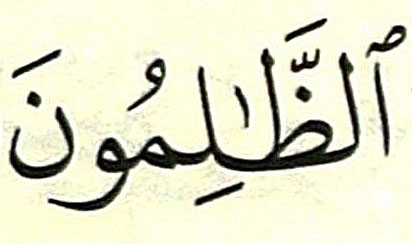 ٱلظَّٰلِمُونَ